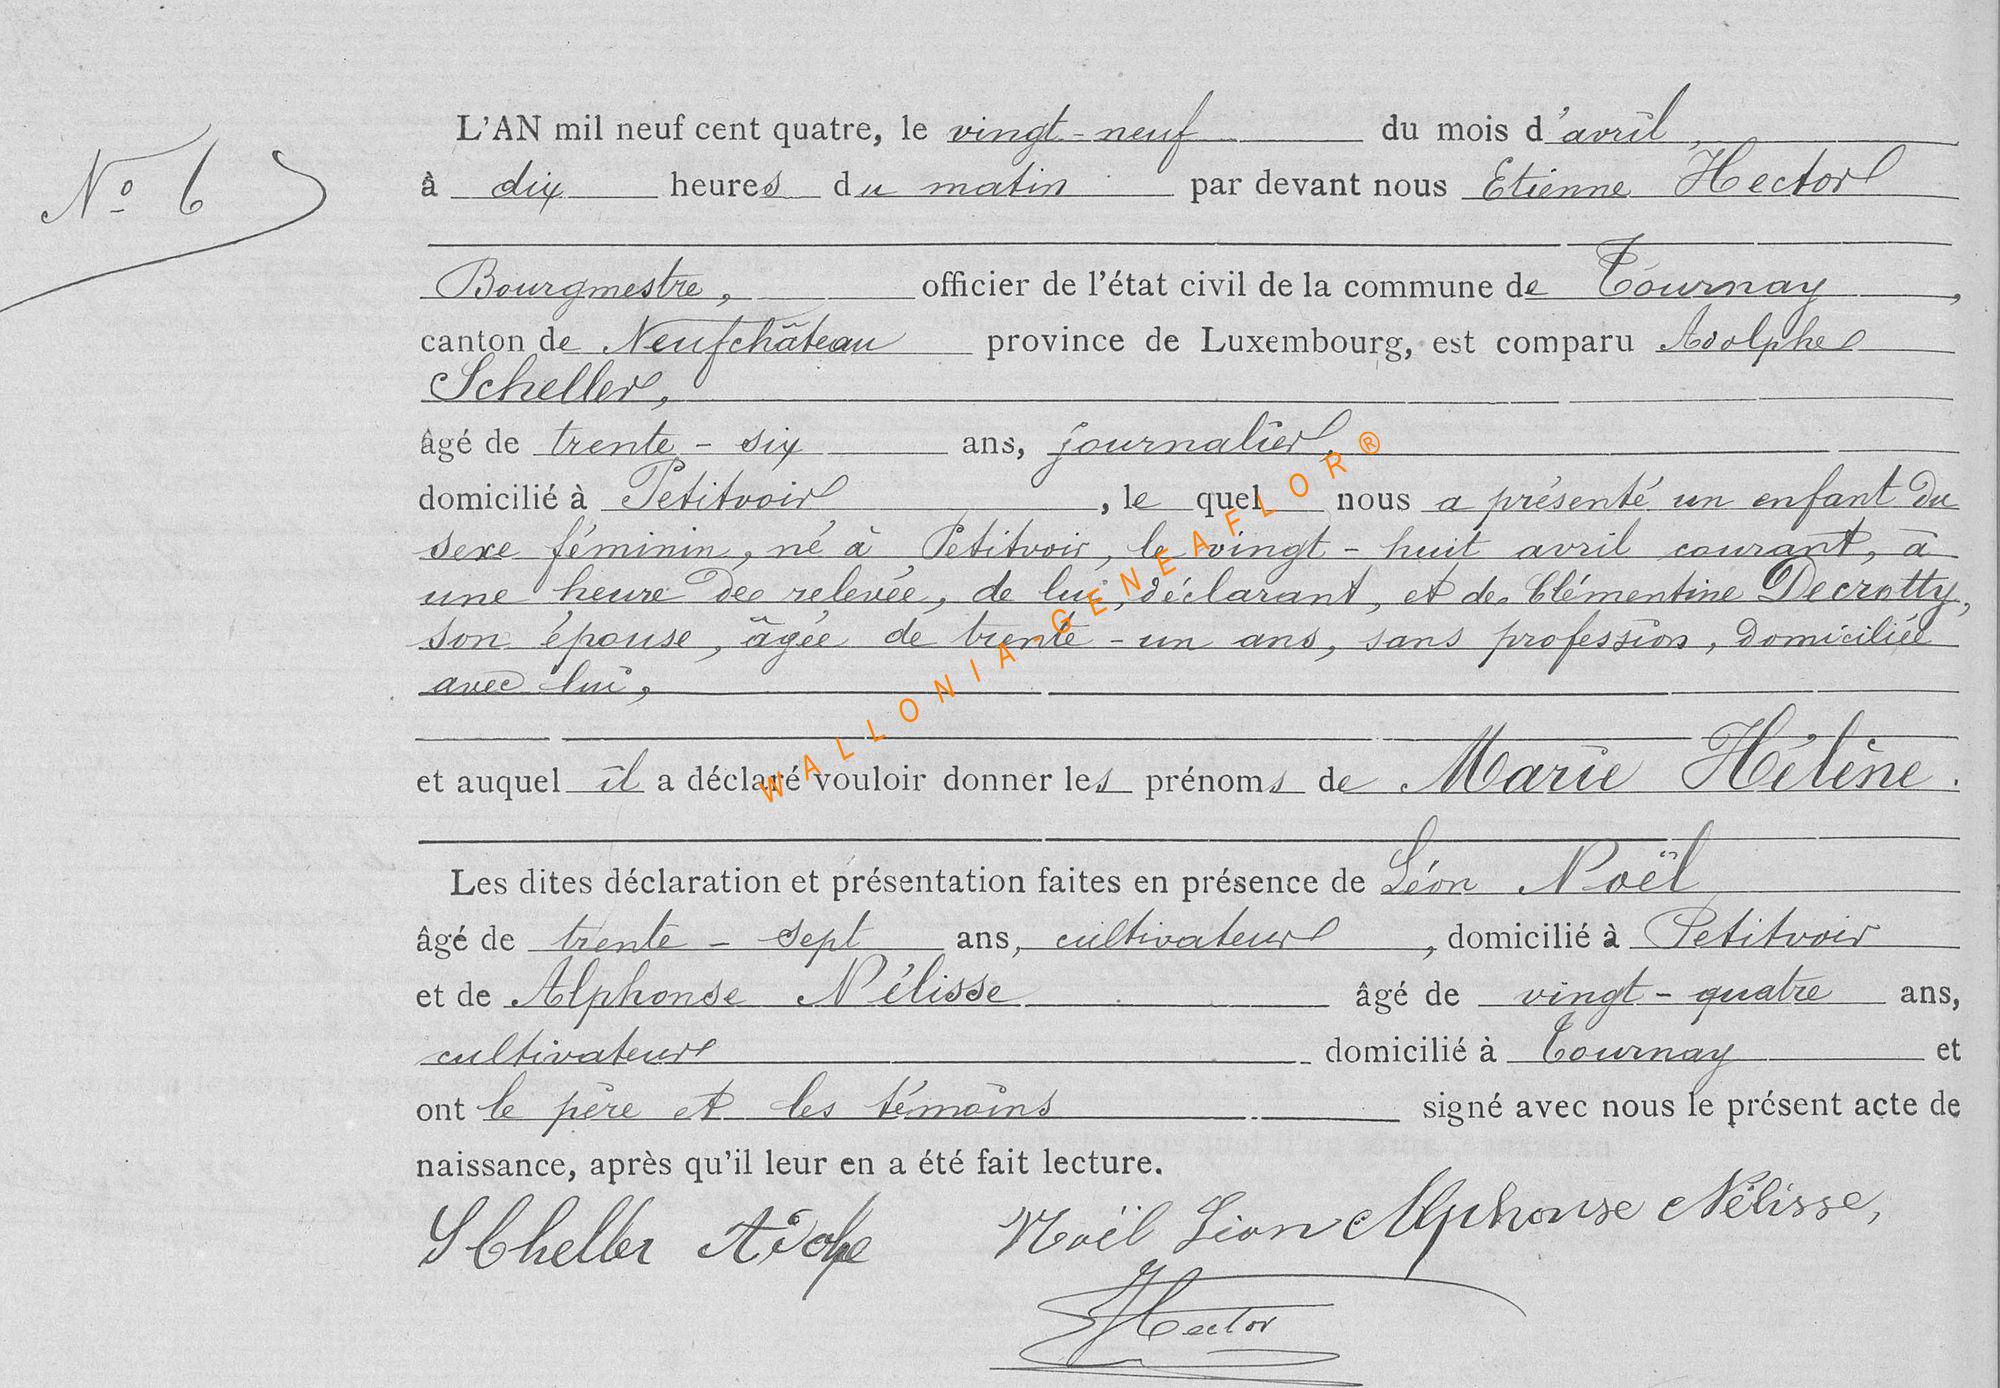 No 6
L'AN mil neuf cent quatre, le vingt-neuf du mois d'avril,
à dix heures du matin par devant nous Etienne Hector
Bourgmestre, officier de l'état civil de la commune de Tournay,
canton de Neufchâteau province de Luxembourg, est comparu Adolphe
Scheller,
âgé de trente-six ans, journalier,
domicilié à Petitvoir, le quel nous a présenté un enfant du
sexe féminin, né à Petitvoir, le vingt-huit avril courant, à
une heure de relevée, de lui, déclarant, et de Clémentine Decrotty,
son épouse, âgée de trente-un ans, sans profession, domiciliée
avec lui,
et auquel il a déclaré vouloir donner les prénoms de Marie Hélène.
Les dites déclaration et présentation faites en présence de Léon Noël
âgé de trente-sept ans, cultivateur, domicilié à Petitvoir
et de Alphonse Nélisse âgé de vingt-quatre ans,
cultivateur domicilié à Tournay et
ont le père et les témoins signé avec nous le présent acte de
naissance, après qu'il leur en a été fait lecture.
Scheller Adolpe Noël Léon Alphonse Nélisse,
Hector
WALLONIA-GENEAFLOR®